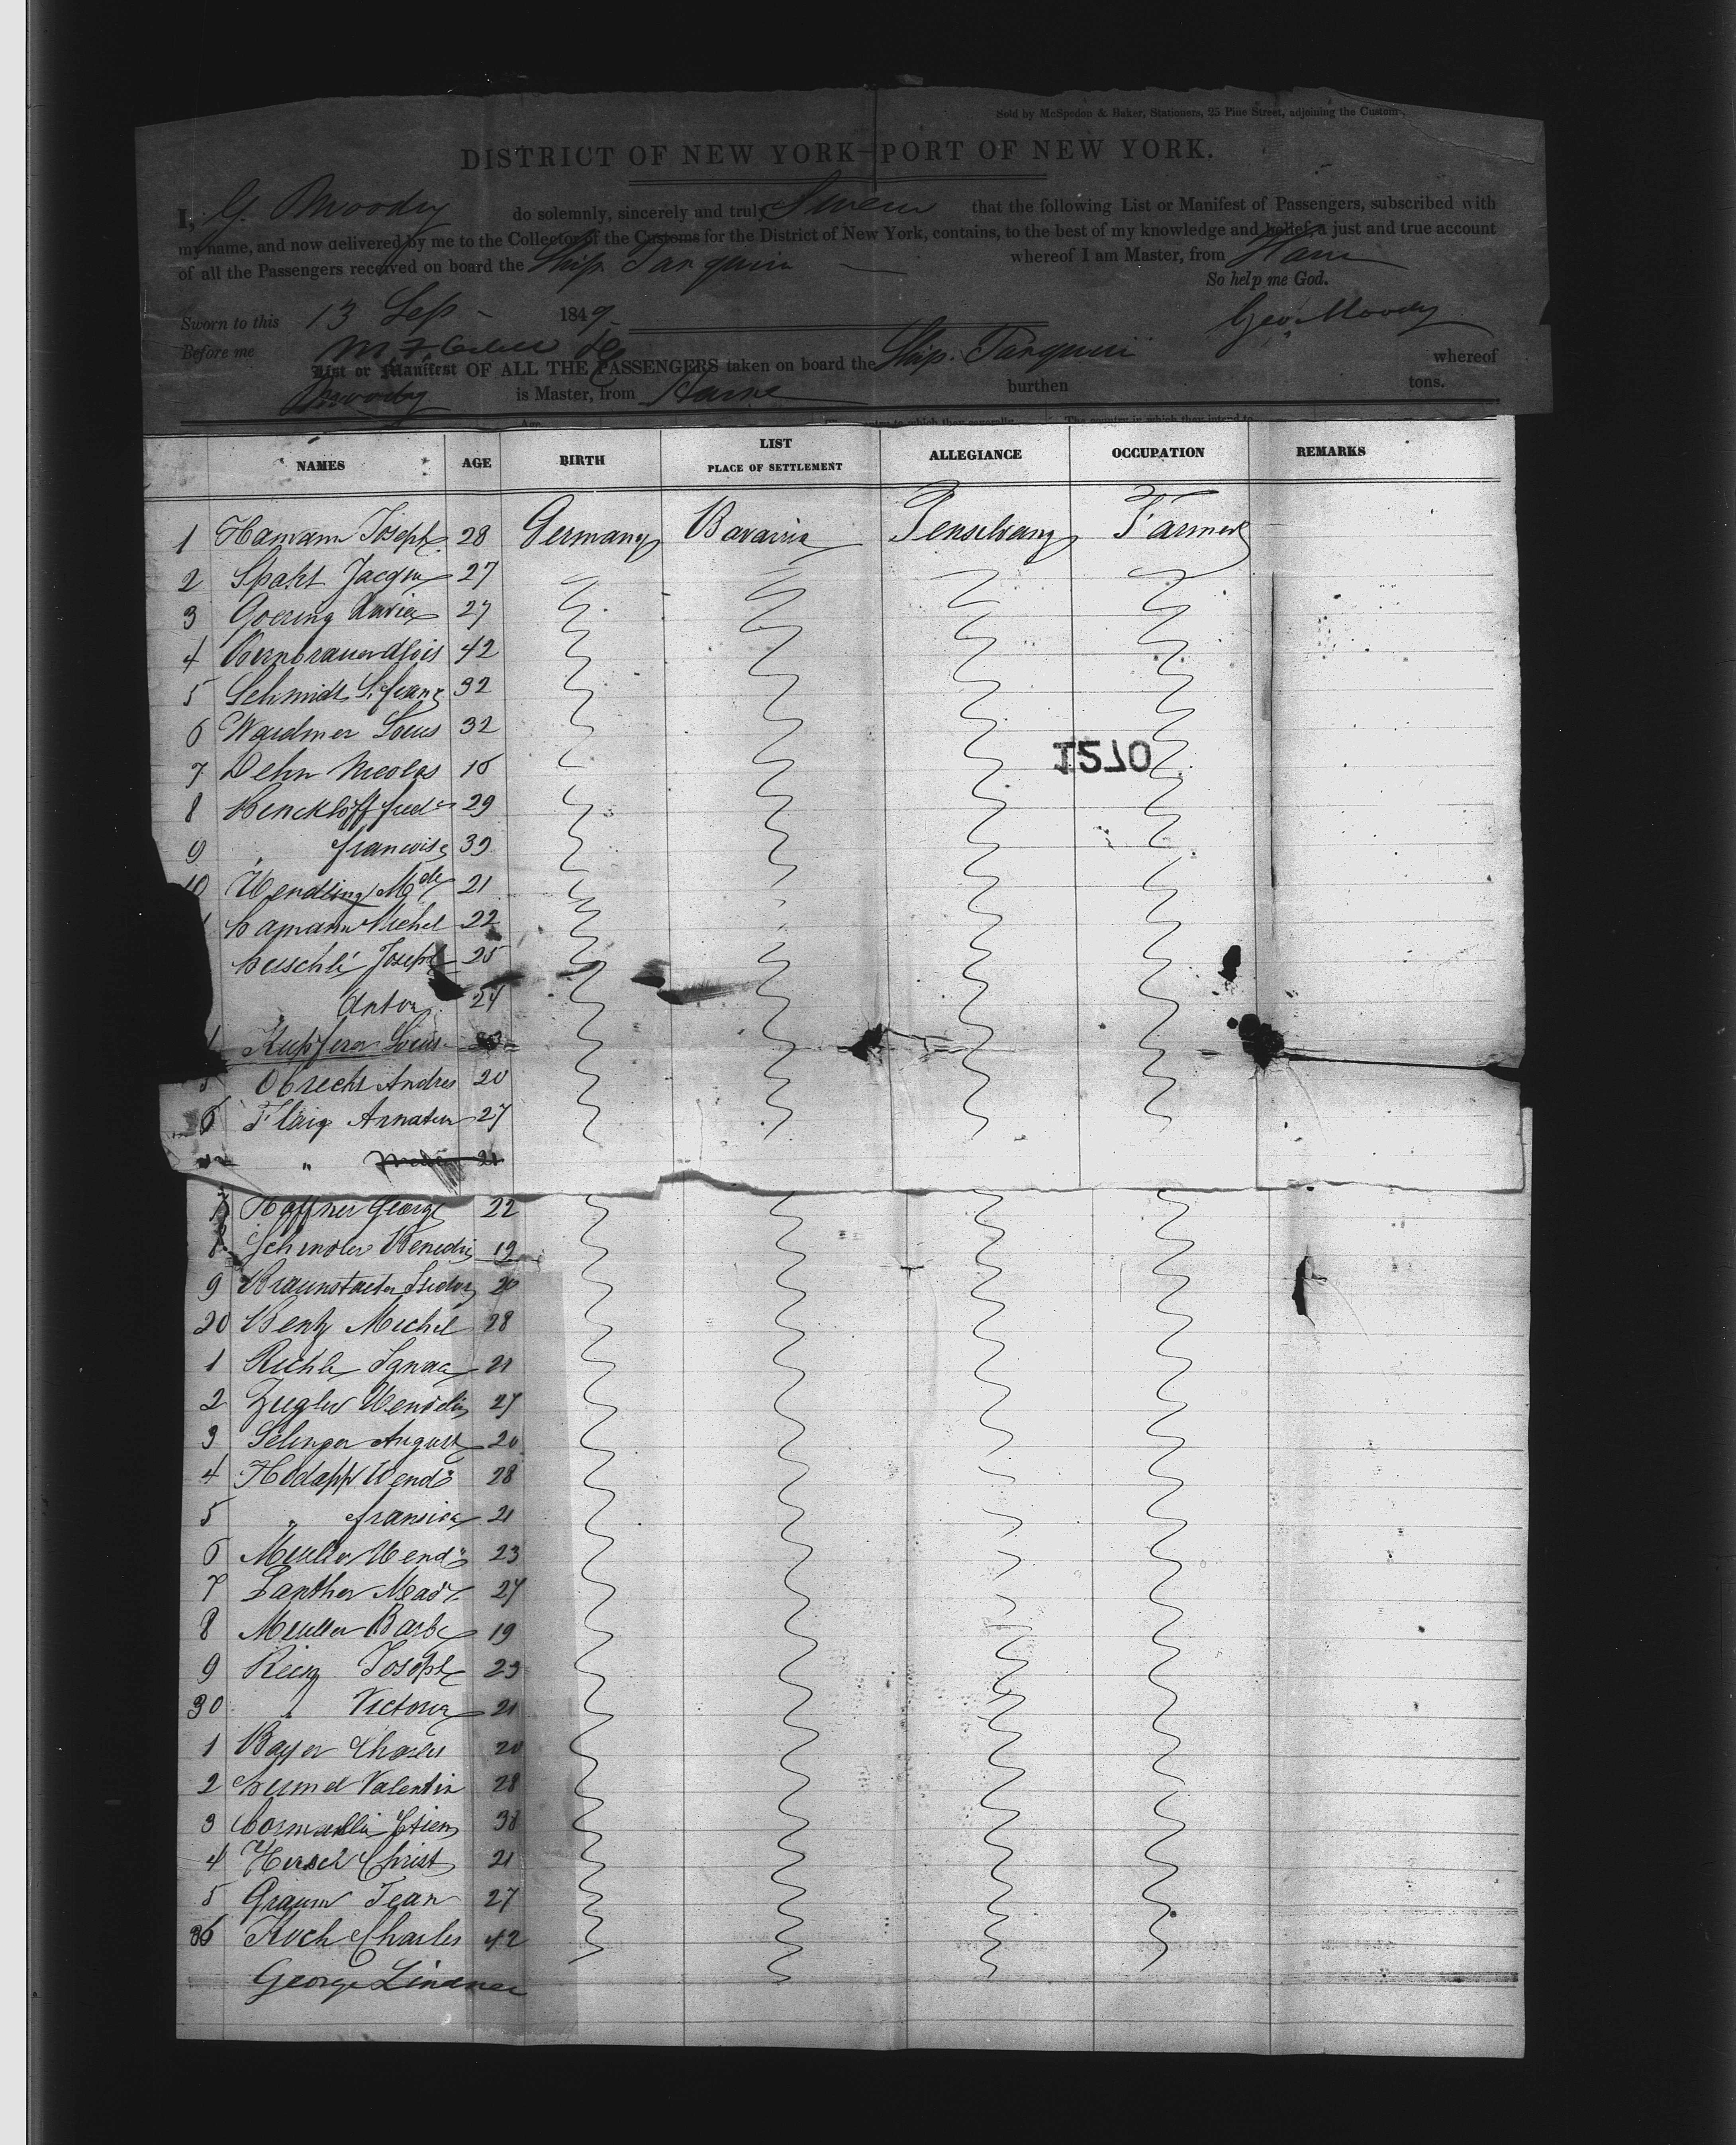 Sold by McSpedon & Baker, Stationers, 25 Pine Street, adjoining the Custom
DISTRICT OF NEW YORK—PORT OF NEW YORK.
I, G. Moody do solemnly, sincerely and truly Swear that the following List or Manifest of Passengers, subscribed with
my name, and now delivered by me to the Collector of the Customs for the District of New York, contains, to the best of my knowledge and belief, a just and true account
of all the Passengers received on board the Ship Tarquin whereof I am Master, from Havre
So help me God.
Sworn to this 13 Sep 1849 Geo. Moody
Before me
List or Manifest OF ALL THE PASSENGERS taken on board the Ship Tarquin whereof
Moody is Master, from Havre burthen tons.
NAMES AGE BIRTH LIST PLACE OF SETTLEMENT ALLEGIANCE OCCUPATION REMARKS
1 Hamann Joseph 28 Germany Bavaria Penselvany Farmer
2 Spaht 27
3 Goering Xavier 27
4 Alois 42
5 Schmidt S. franz 32
6 Waidmer Louis 32
7 Dehn Nicolas 16
8 Benckloff fred 29
9 francoise 39
10 Wendling 21
Michel 22
Joseph 25
Anton 24
Kupferer Louis
5 Obrecht Andres 20
6 Flaig 27
" 21
7 Haffner George 22
8 Schindler Benedic 19
9 Braunstaeder Isidor 20
20 Bentz Michel 28
1 Richle Ignac 21
2 Ziegler Wendelin 27
3 Selinger August 20
4 Hodapp Wend 28
5 " fransica 21
6 Muller Wend 23
7 27
8 Muller Barbe 19
9 Joseph 23
30 " Victoria 21
1 Bayer Charles 20
2 Valentin 28
3 38
4 Hirsch Christ 21
5 Graum Jean 27
36 Koch Charles 42
George Lindner
1570